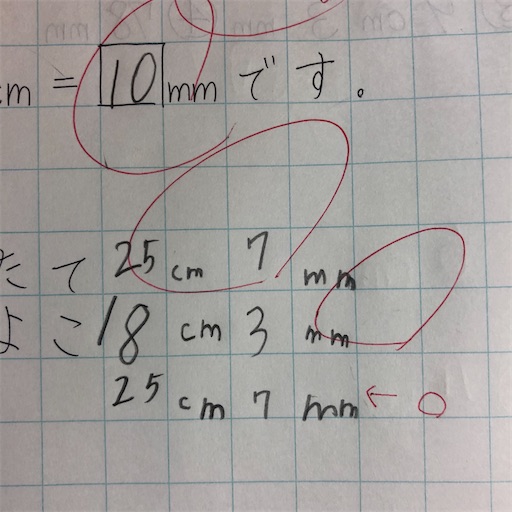 cm = 10 mm です。
たて 25 cm 7 mm
よこ 18 cm 3 mm
25 cm 7 mm ← ○